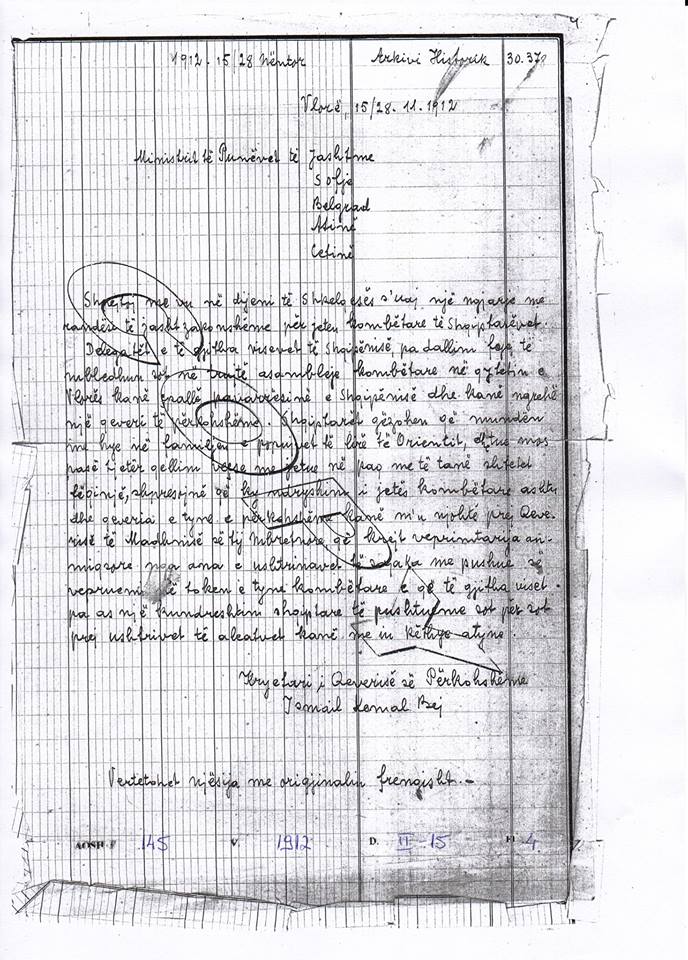 1912 - 15/28 Nëntor Arkivi Historik 30.37
Vlorë, 15/28. 11. 1912
Ministrit të Punëvet të Jashtme
Sofje
Belgrad
Atinë
Cetinë
me vu në dijeni të Shkelqesës s'uaj një ngjarje me
randësi të jashtzakonshëme për jetën kombëtare të Shqiptarëvet.
Delegatët e të gjitha visevet të Shqipënisë, pa dallim feje të
mbledhun sot në trajtë asambleje kombëtare në qytetin e
Vlorës kanë pavarrësinë e Shqipënisë dhe kanë ngrehë
një geveri të përkohshëme. Shqiptarët gëzohen që munden
me hye në familjen e popujvet të lirë të Orientit, mos
pasë tjetër qellim veçse me jetue në paq me të tanë shtetet
shpresojnë që ky ndryshim i jetës kombëtare ashtu
dhe geveria e tyne e përkohshëme kanë m'u njohtë prej Qeve-
risë të Madhnisë së tij Mbretnore që krejt veprimtarija an-
miqsore nga ana e ushtrinavet të me pushue së
vepruemi në token e tyne kombëtare e që të gjitha viset
pa as një kundreshtim shqiptare të pushtueme sot për sot
prej ushtrivet të aleatvet kanë me iu këthye atyne.
Kryetari i Qeverisë së Përkohshëme
Ismail Kemal Bej
Vertetohet njësija me origjinalin frengisht. -
AQSH F 145 V. 1912 D. II - 15 Fl 4